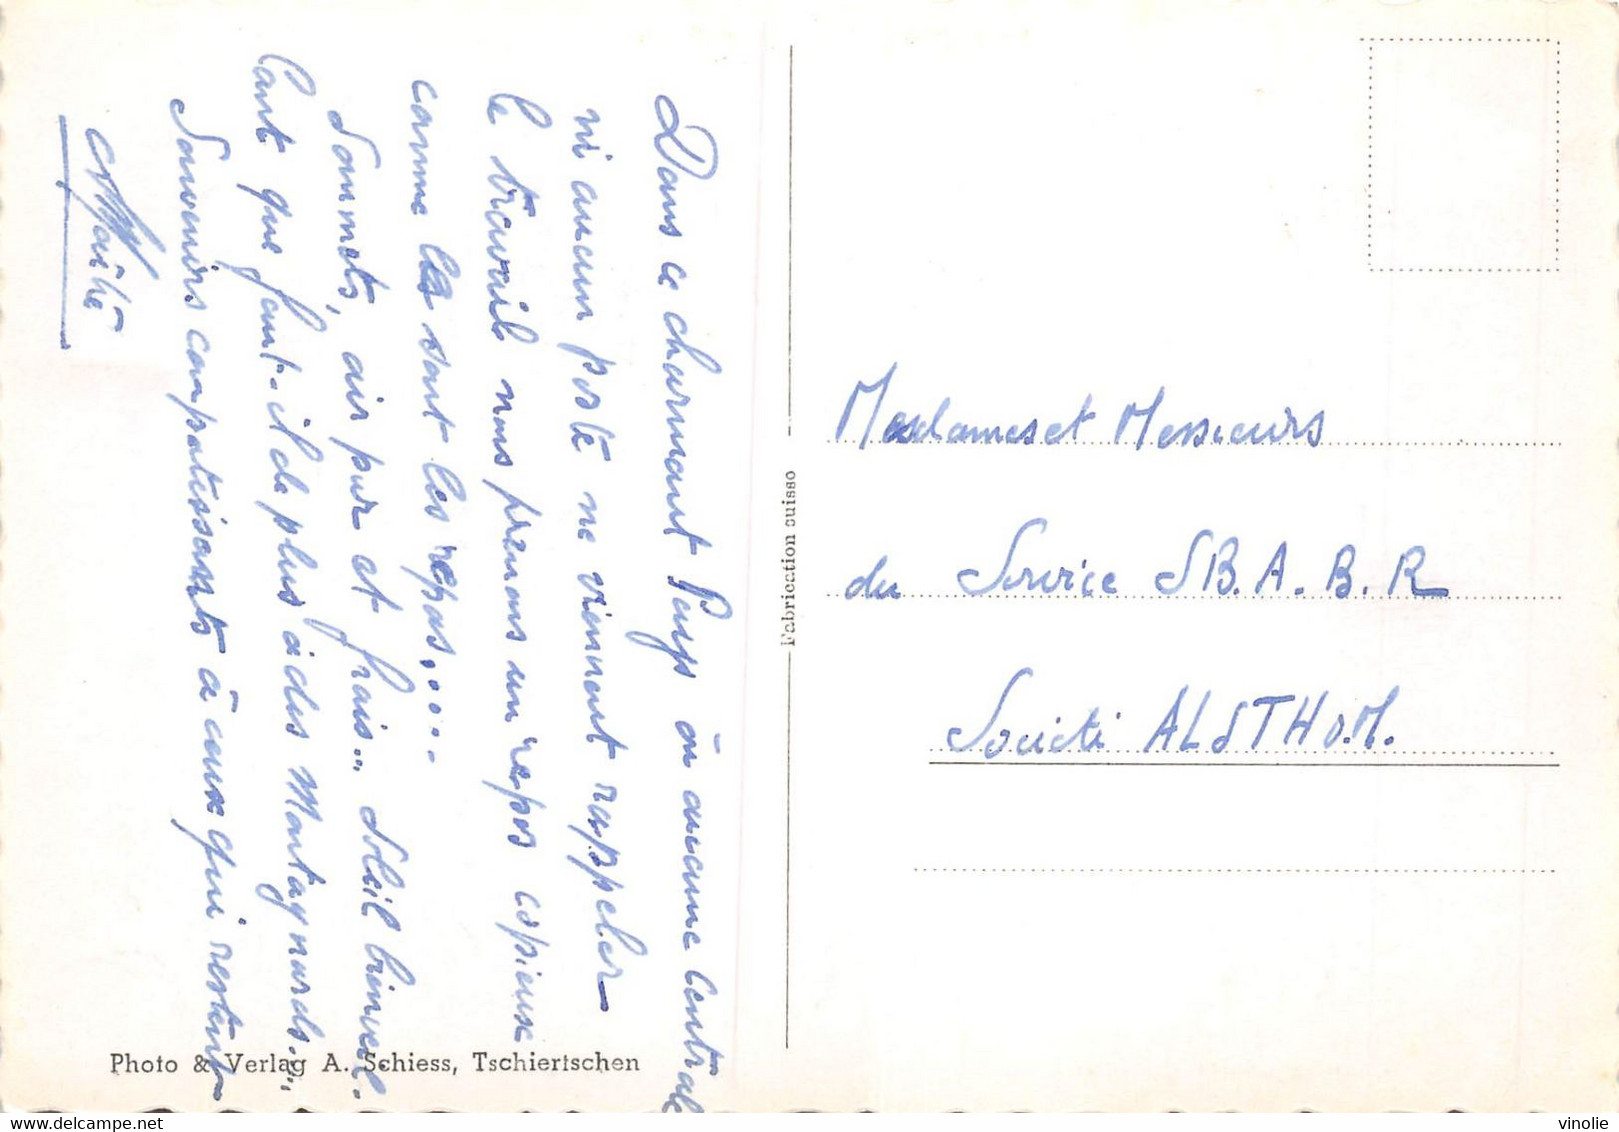 Dans ce charmant Pays où aucune Centrale
ni aucun poste ne viennent rappeler
le travail nous prenons un repos copieux
comme le sont les repas.....
Sommets, air pur et frais... Soleil bienveil-
lant que faut-il de plus à des Montagnards...
Souvenirs compatissants à ceux qui restent
Maïté
Photo & Verlag A. Schiess, Tschiertschen
Fabrication suisse
Mesdames et Messieurs
du Service SB.A.B.R
Société ALSTHOM.
delcampe.net
vinolie